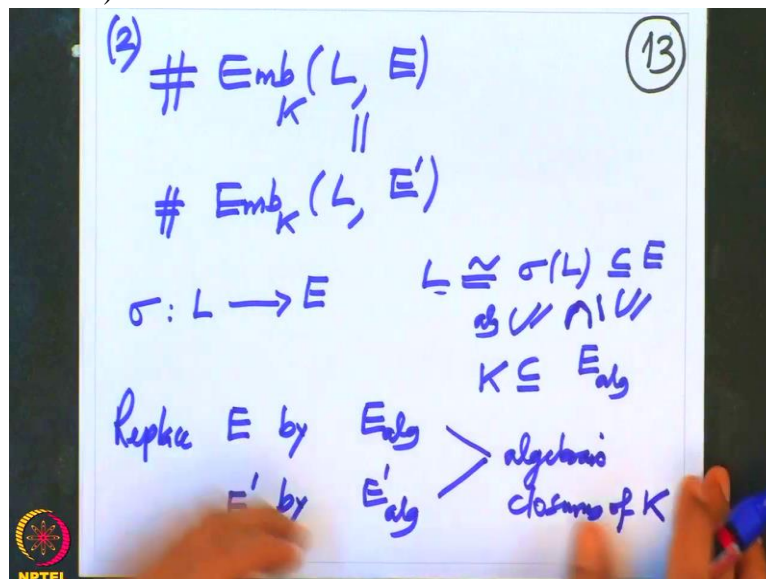 (2) # Emb_K (L, E)
||
# Emb_K (L, E′)
13
σ : L ⟶ E
L ≅ σ(L) ⊆ E
alg ∪∕ ∩| ∪∕
K ⊆ E_alg
Replace E by E_alg
E′ by E′_alg
> algebraic
closures of K
NPTEL